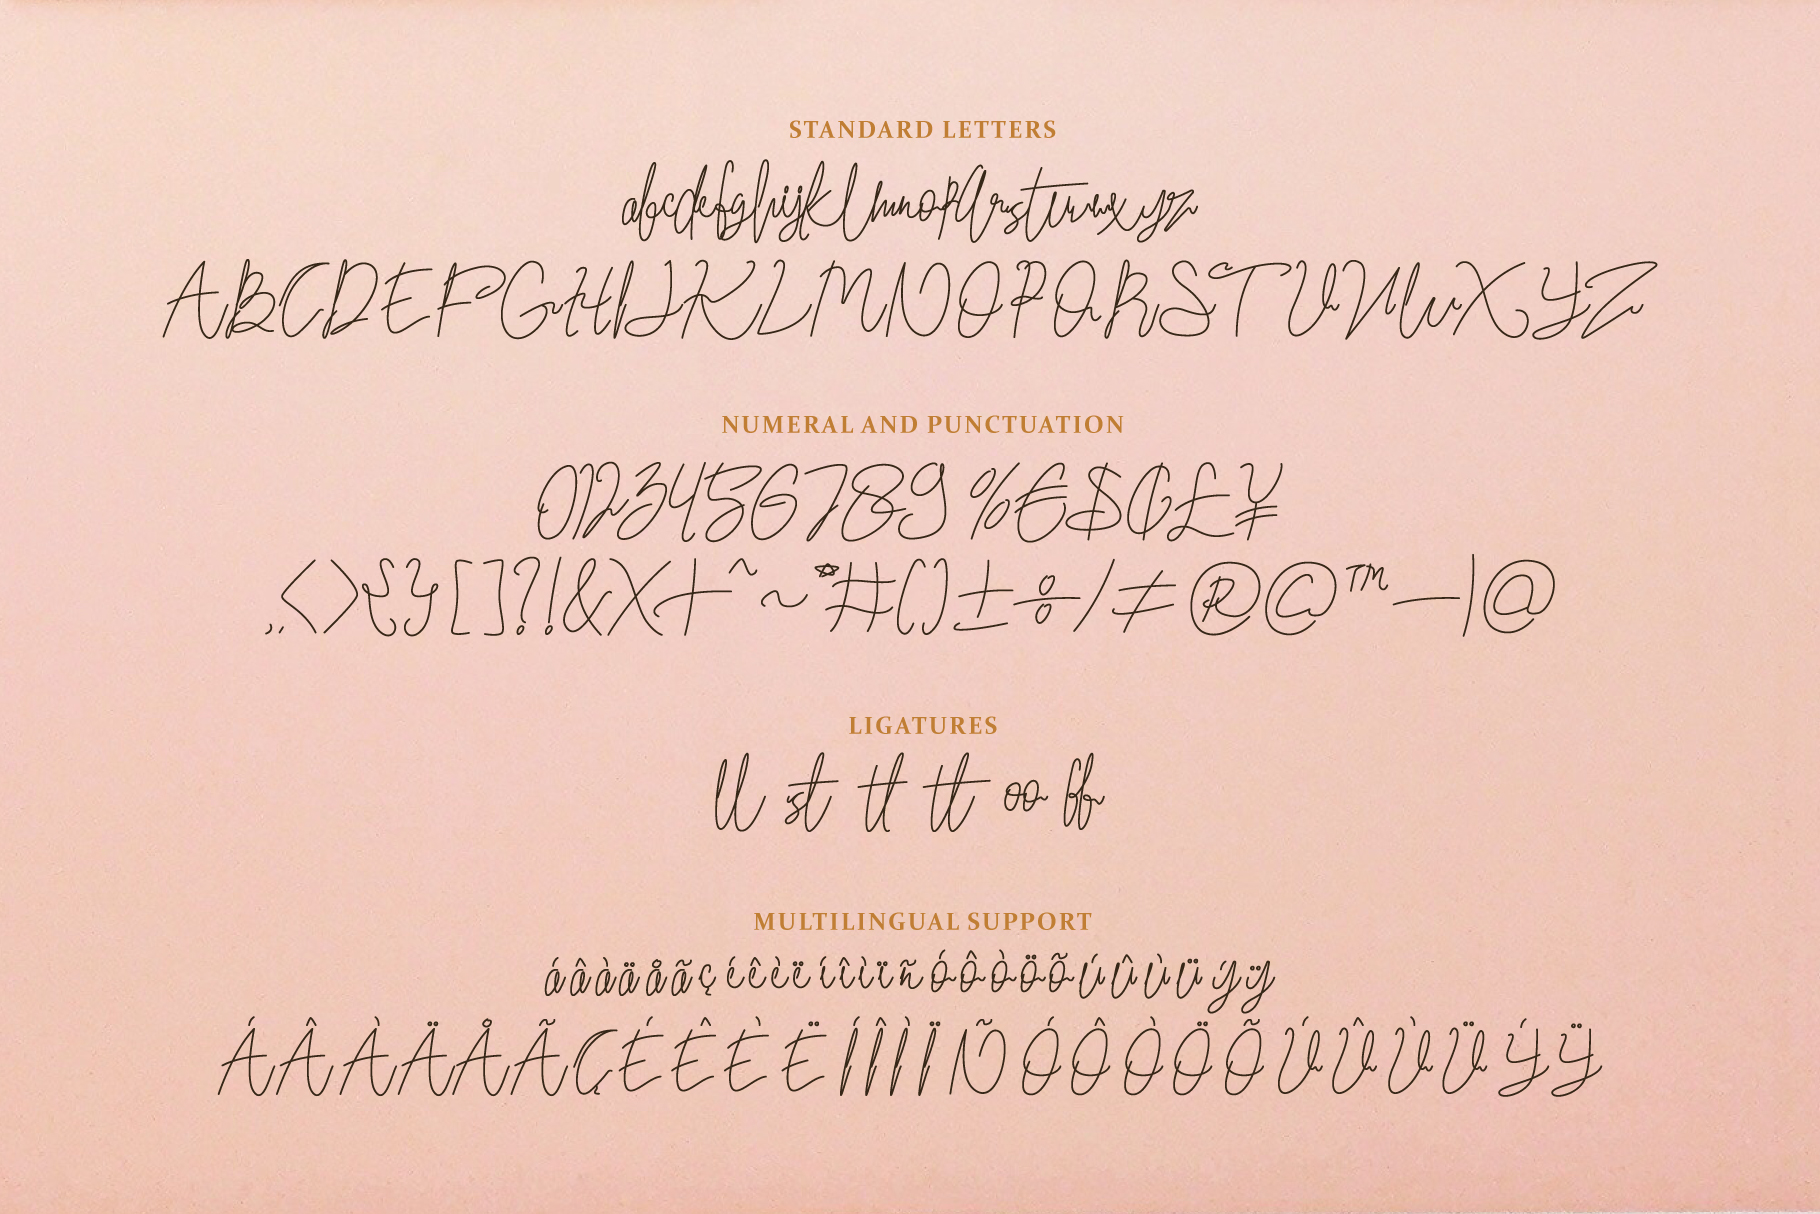 STANDARD LETTERS
abcdefghijklmnopqrstuvwxyz
ABCDEFGHIJKLMNOPQRSTUVWXYZ
NUMERAL AND PUNCTUATION
0123456789 %€$₵£¥
,.<>{}[]?!&X+^~*#()±÷/≠®©™—|@
LIGATURES
ll st tl tt oo ff
MULTILINGUAL SUPPORT
áâàäåãçéêèëíîìïñóôòöõúûùüýÿ
ÁÂÀÄÅÃÇÉÊÈËÍÎÌÏÑÓÔÒÖÕÚÛÙÜÝŸ